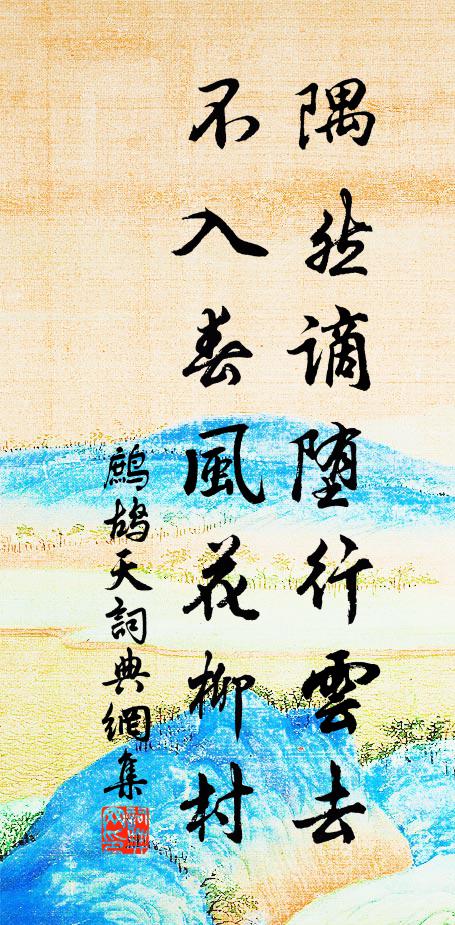 隅然謫墮行雲去
不入春風花柳村
鷓鴣天詞典網集